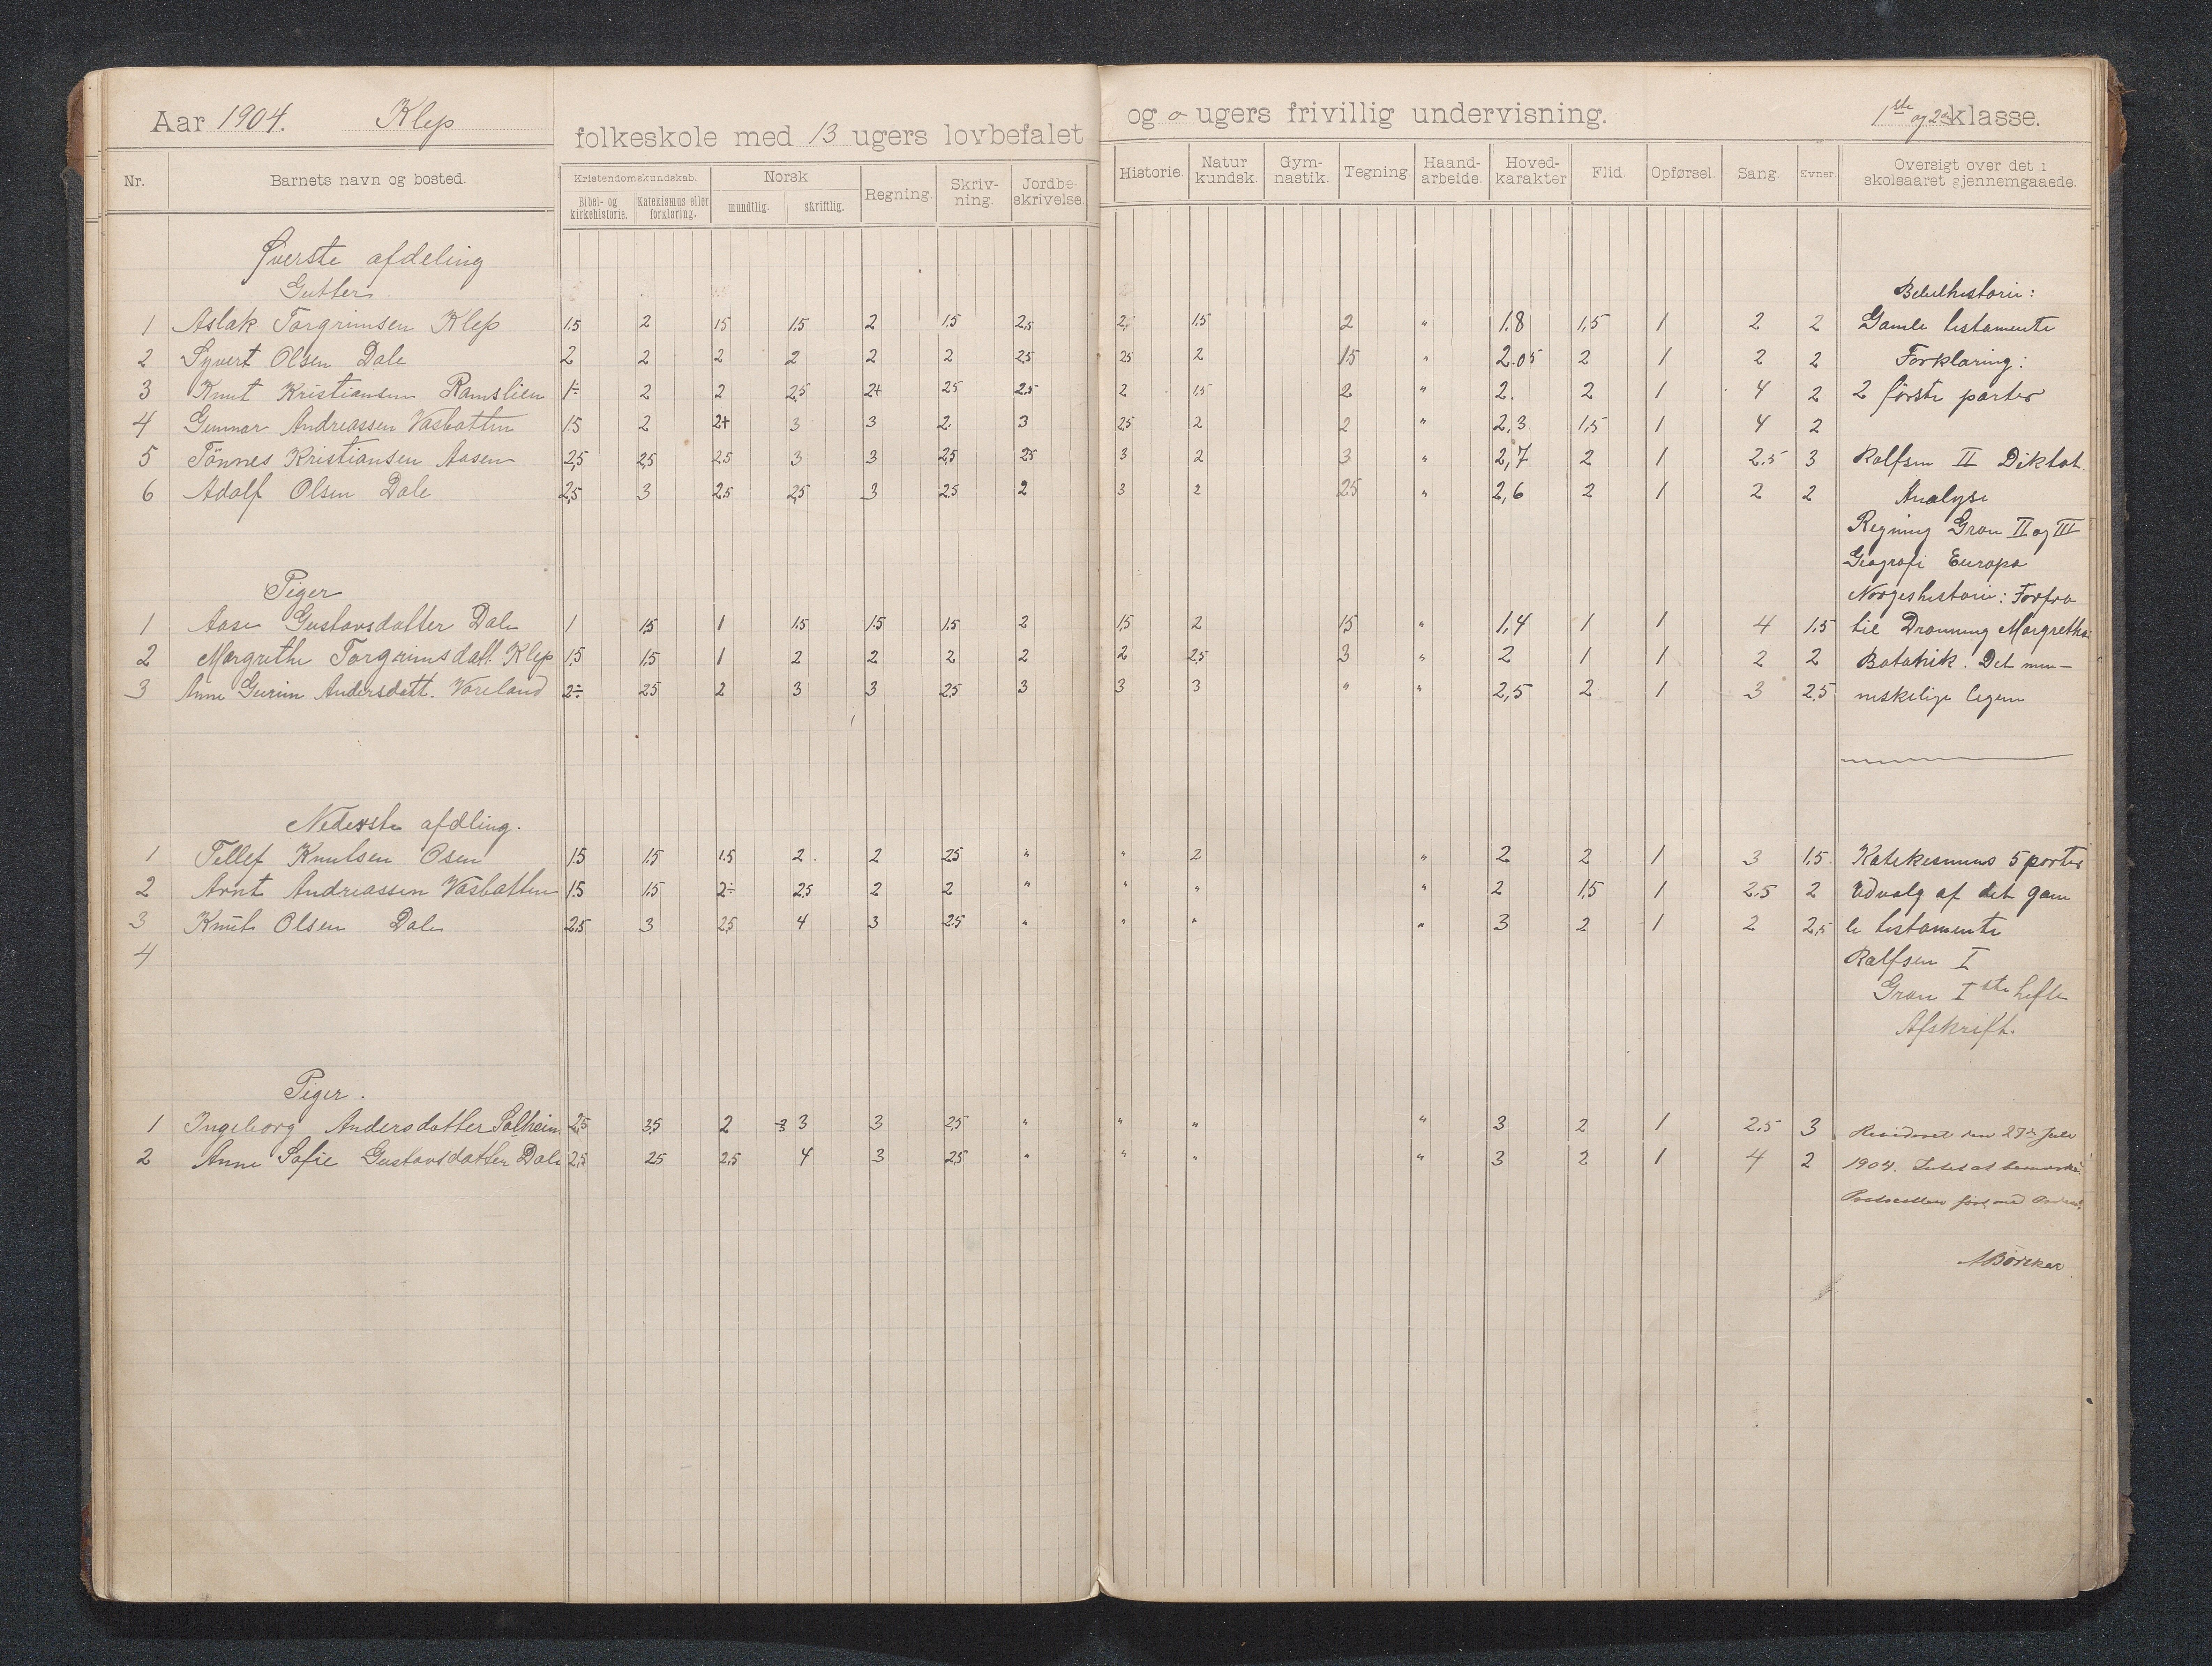 Aar 1904. Klep folkeskole med 13 ugers lovbefalet og o ugers frivillig undervisning. 1ste og 2den klasse.
Nr. Barnets navn og bosted. Kristendomskundskab. Bibel- og kirkehistorie. Katekismus eller forklaring. Norsk mundtlig. skriftlig. Regning. Skrivning. Jordbeskrivelse. Historie. Naturkundsk. Gymnastik. Tegning Haandarbeide. Hovedkarakter Flid. Opførsel. Sang. Evner. Oversigt over det i skoleaaret gjennemgaaede.
Øverste afdeling
Gutter. Bibelhistorie:
1 Aslak Torgrimsen Klep 1.5 2 1.5 1.5 2 1.5 2,5 2, 1.5 2 " 1.8 1,5 1 2 2 Gamle testamente
2 Syvert Olsen Dale 2 2 2 2 2 2 2.5 2.5 2 1.5 " 2.05 2 1 2 2 Forklaring:
3 Knut Kristiansen Ramslien 1÷ 2 2 2,5 2+ 2.5 2.5 2 1.5 2 " 2. 2 1 4 2 2 første parter
4 Gunnar Andreassen Vasbotten 1.5 2 2+ 3 3 2. 3 2.5 2 2 " 2,3 1,5 1 4 2
5 Tönnes Kristiansen Aasen 2,5 2,5 2.5 3 3 2,5 2.5 3 2 3 " 2,7 2 1 2.5 3 Rolfsen II Diktat
6 Adolf Olsen Dale 2,5 3 2.5 2,5 3 2.5 2 3 2 2.5 " 2,6 2 1 2 2 Analyse
Regning Gran II og III
Geografi Europa
Piger Norgeshistorie: Forfra
1 Aase Gustavsdatter Dale 1 1.5 1 1.5 1.5 1.5 2 1,5 2 1.5 " 1,4 1 1 4 1.5 til Dronning Margrethe
2 Margrethe Torgrimsdatt. Klep 1.5 1.5 1 2 2 2 2 2 2,5 3 " 2 1 1 2 2 Botanik. Det men-
3 Anne Gurine Andersdatt. Vareland 2÷ 2.5 2 3 3 2.5 3 3 3 " " 2,5 2 1 3 2.5 neskelige legem
Nederste afdling.
1 Tellef Knutsen Osen 1.5 1.5 1.5 2. 2 2.5 " " 2 " 2 2 1 3 1.5 Katekismus 5 parter
2 Arnt Andreassen Vasbotten 1.5 1.5 2÷ 2.5 2 2 " " " " 2 1,5 1 2.5 2 Udvalg af det gam
3 Knut Olsen Dale 2.5 3 2.5 4 3 2.5 " " " " 3 2 1 2 2,5 le testamente
4 Rolfsen I
Gran I ste hefte
Afskrift.
Piger.
1 Ingeborg Andersdatter Solheim 2.5 3.5 2 3 3 2.5 " " " " 3 2 1 2.5 3 Revideret den 27de Juli
2 Anne Sofie Gustavsdatter Dale 2.5 2.5 2.5 4 3 2.5 " " " " 3 2 1 4 2 1904. Intet at bemærke.
Protocollen ført med Orden.